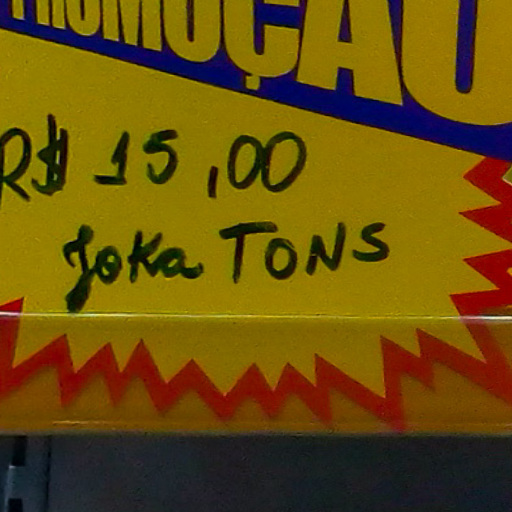 PROMOÇÃO
R$ 15,00
Joka TONS